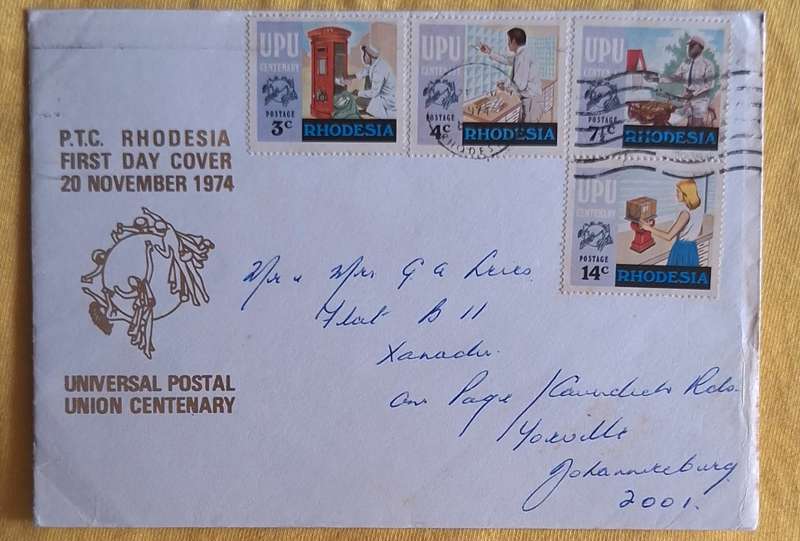 P.T.C. RHODESIA
FIRST DAY COVER
20 NOVEMBER 1974
UNIVERSAL POSTAL
UNION CENTENARY
UPU
CENTENARY
POSTAGE
3c
RHODESIA
UPU
CENTENARY
POSTAGE
4c
RHODESIA
UPU
CENTENARY
POSTAGE
7½c
RHODESIA
UPU
CENTENARY
POSTAGE
14c
RHODESIA
Mr & Mrs G A
Flat B 11
Xanadu
Cnr Page / Rds
Yeoville
Johannesburg
2001.